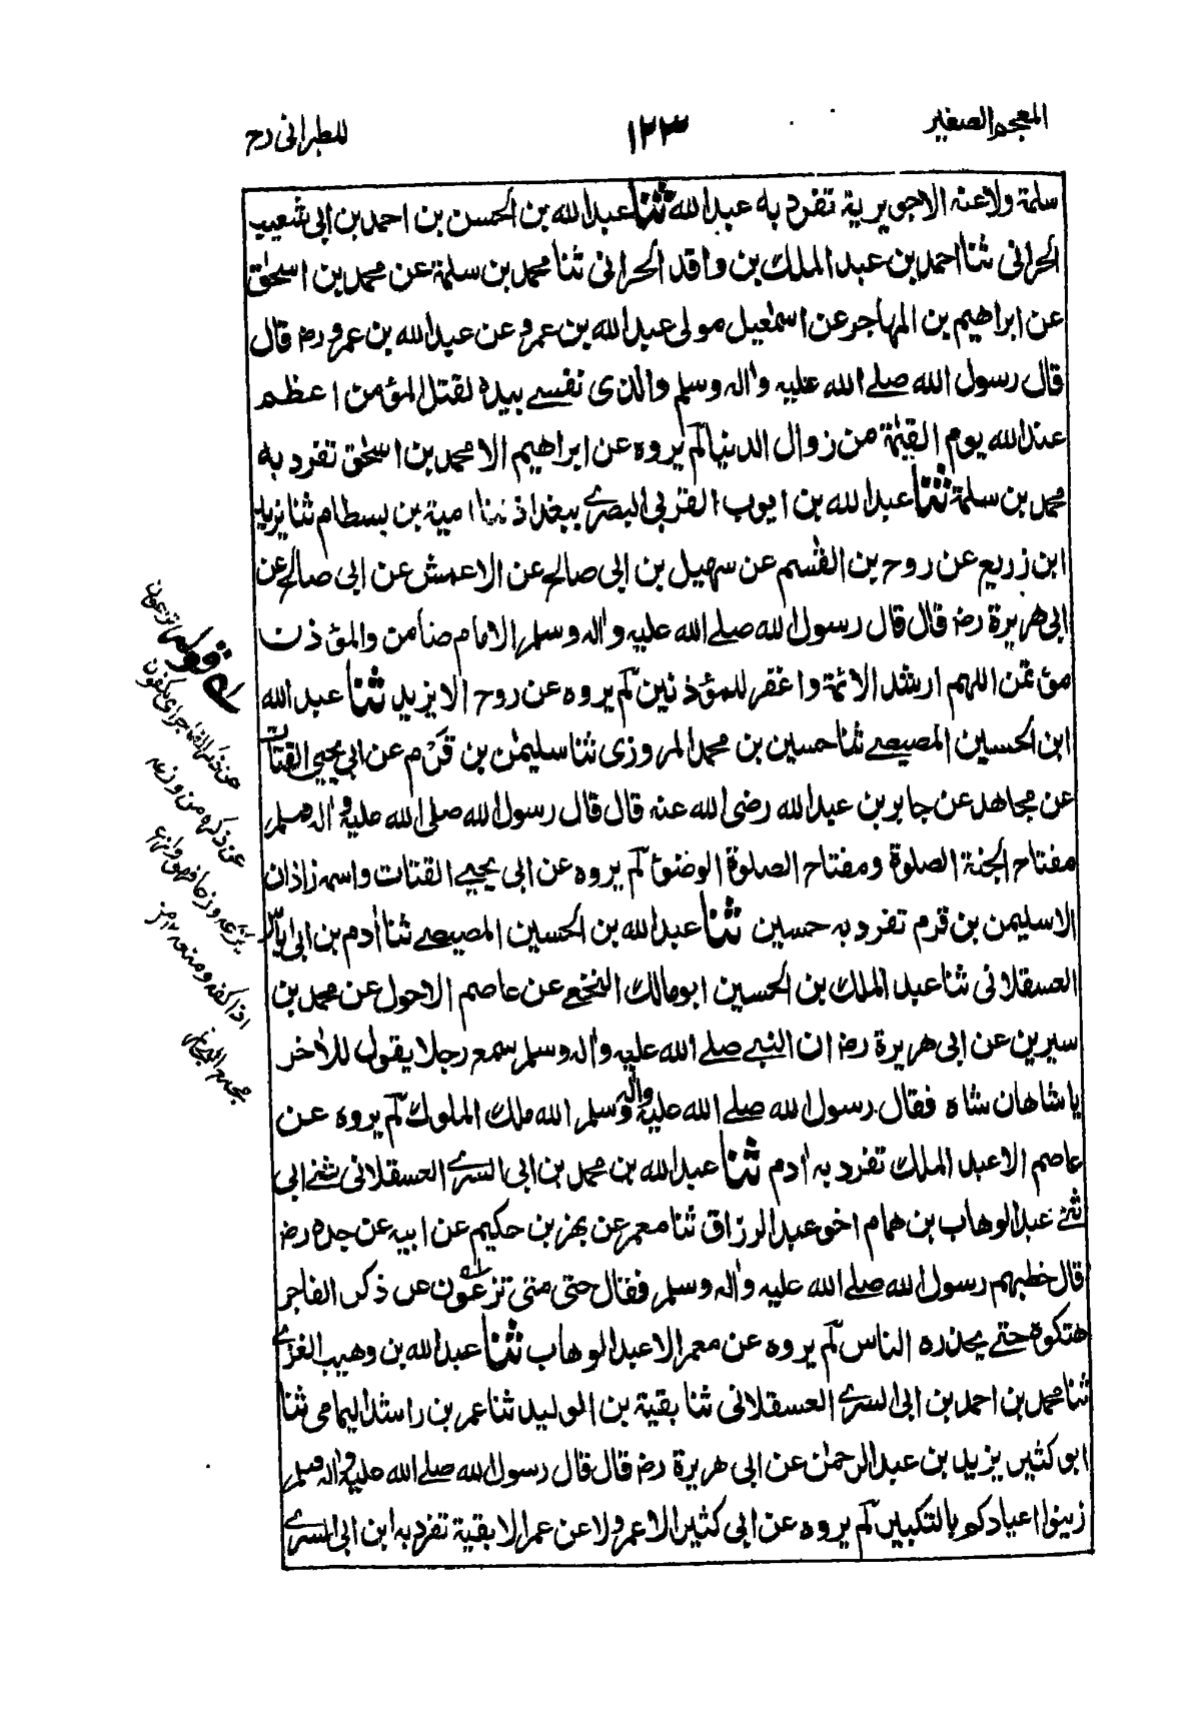 المعجم الصغير
١٢٣
للطبرانى رح
سلمة ولا عنه الا جويرية تفرد به عبد الله ثنا عبد الله بن الحسن بن احمد بن ابى شعيب
الحرانى ثنا احمد بن عبد الملك بن واقد الحرانى ثنا محمد بن سلمة عن محمد بن اسحٰق
عن ابراهيم بن المهاجر عن اسمٰعيل مولى عبد الله بن عمرو عن عبد الله بن عمرو رض قال
قال رسول الله صلے الله عليه واٰله وسلم والذى نفسے بيده لقتل المؤمن اعظم
عند الله يوم القيٰمة من زوال الدنيا لم يروه عن ابراهيم الا محمد بن اسحٰق تفرد به
محمد بن سلمة ثنا عبد الله بن ايوب القربى البصرے ببغداذ ثنا امية بن بسطام ثنا يزيد
ابن زريع عن روح بن القٰسم عن سهيل بن ابى صالح عن الاعمش عن ابى صالح عن
ابى هريرة رض قال قال رسول الله صلے الله عليه واٰله وسلم الامام ضامن والمؤذن
مؤتمن اللهم ارشد الائمة واغفر للمؤذنين لم يروه عن روح الا يزيد ثنا عبد الله
ابن الحسين المصيصے ثنا حسين بن محمد المروزى ثنا سليمٰن بن قَرْم عن ابى يحيى القتات
عن مجاهد عن جابر بن عبد الله رضى الله عنه قال قال رسول الله صلى الله عليه واٰله وسلم
مفتاح الجنة الصلوة ومفتاح الصلوة الوضوٴ لم يروه عن ابى يحيے القتات واسمه زاذان
الا سليمن بن قرم تفرد به حسين ثنا عبد الله بن الحسين المصيصے ثنا اٰدم بن ابى اياس
العسقلانى ثنا عبد الملك بن الحسين ابو مالك النخعے عن عاصم الاحول عن محمد بن
سيرين عن ابى هريرة رض ان النبے صلے الله عليه واٰله وسلم سمع رجلا يقول للاٰخر
يا شاهان شاه فقال رسول الله صلے الله عليه واٰله وسلم الله ملك الملوك لم يروه عن
عاصم الا عبد الملك تفرد به اٰدم ثنا عبد الله بن محمد بن ابى السرے العسقلانى ثنے ابى
ثنے عبد الوهاب بن همام اخو عبد الرزاق ثنا معمر عن بهز بن حكيم عن ابيه عن جده رض
قال خطبهم رسول الله صلے الله عليه واٰله وسلم فقال حتى متى تزعون عن ذكر الفاجر
هتكوه حتے يحذره الناس لم يروه عن معمر الا عبد الوهاب ثنا عبد الله بن وهيب الغزے
ثنا محمد بن احمد بن ابى السرے العسقلانى ثنا بقية بن الوليد ثنا عمر بن راشد اليمامى ثنا
ابو كثير يزيد بن عبد الرحمٰن عن ابى هريرة رض قال قال رسول الله صلے الله عليه واٰله وسلم
زينوا اعيادكم بالتكبير لم يروه عن ابى كثير الا عمر ولا عن عمر الا بقية تفرد به ابن ابى السرے
قوله تزعون
عن ذكره من وزعه
يزعه وزعا فهو وازع
اذا كفه ومنعه ١٢ من
مجمع البحار